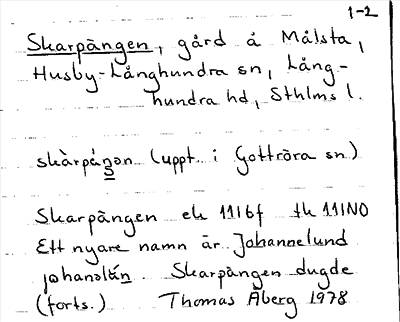 1-2
Skarpängen, gård å Målsta,
Husby-Långhundra sn, Lång-
hundra hd, Sthlms l.
skàrpáŋən (uppt. i Gottröra sn)
Skarpängen ek 11I6f tk 11INO
Ett nyare namn är Johannelund
johanəlún. Skarpängen dugde
(forts.) Thomas Åberg 1978